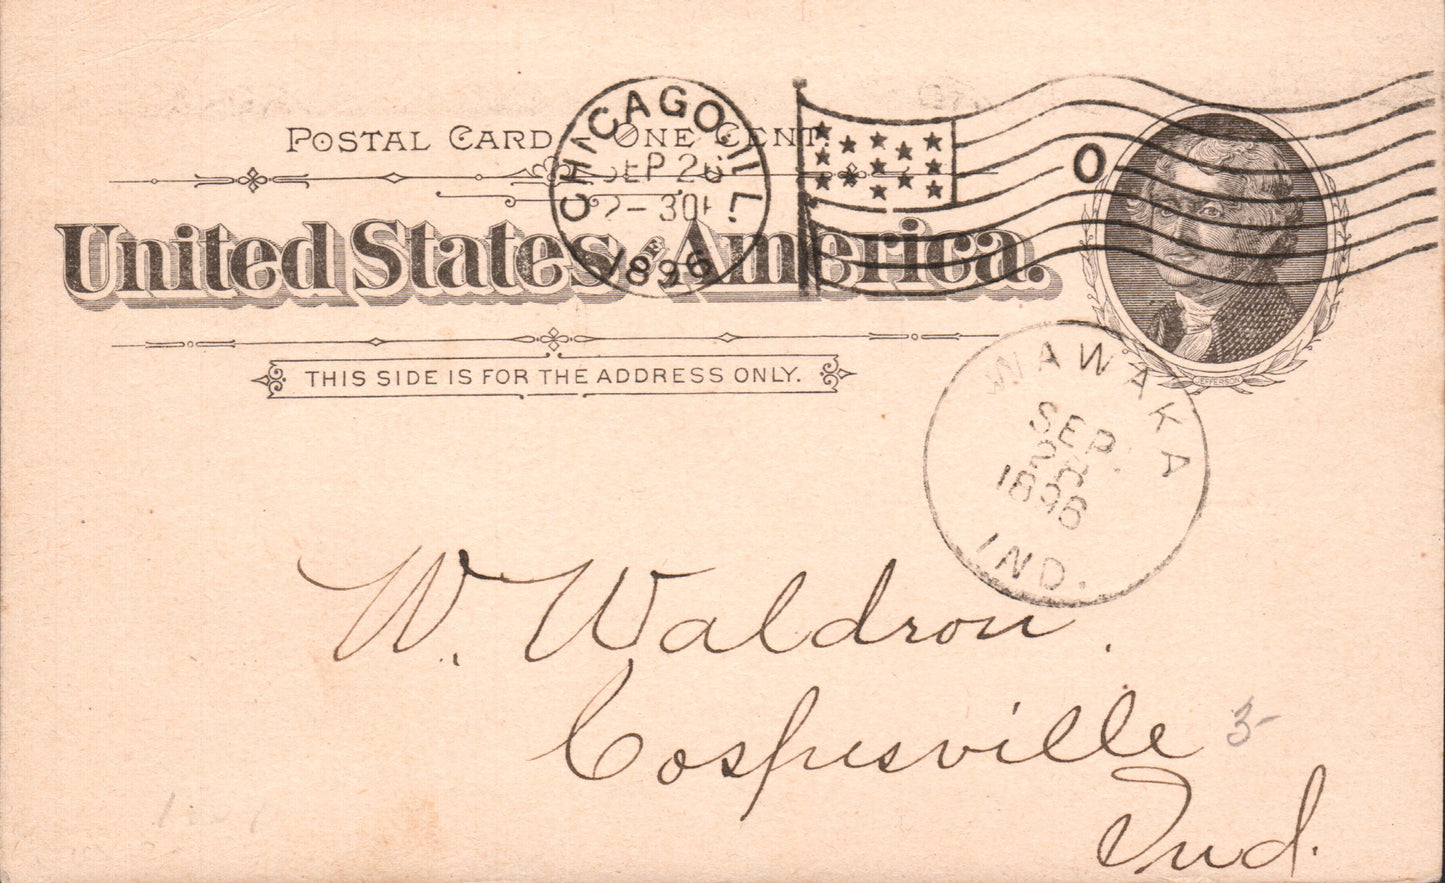 POSTAL CARD ONE CENT.
United States of America.
THIS SIDE IS FOR THE ADDRESS ONLY.
CHICAGO, ILL.
SEP 26
2-30P
1896
O
JEFFERSON
WAWAKA
SEP
1896
IND.
W. Waldron,
Cospusville
Ind.
3-